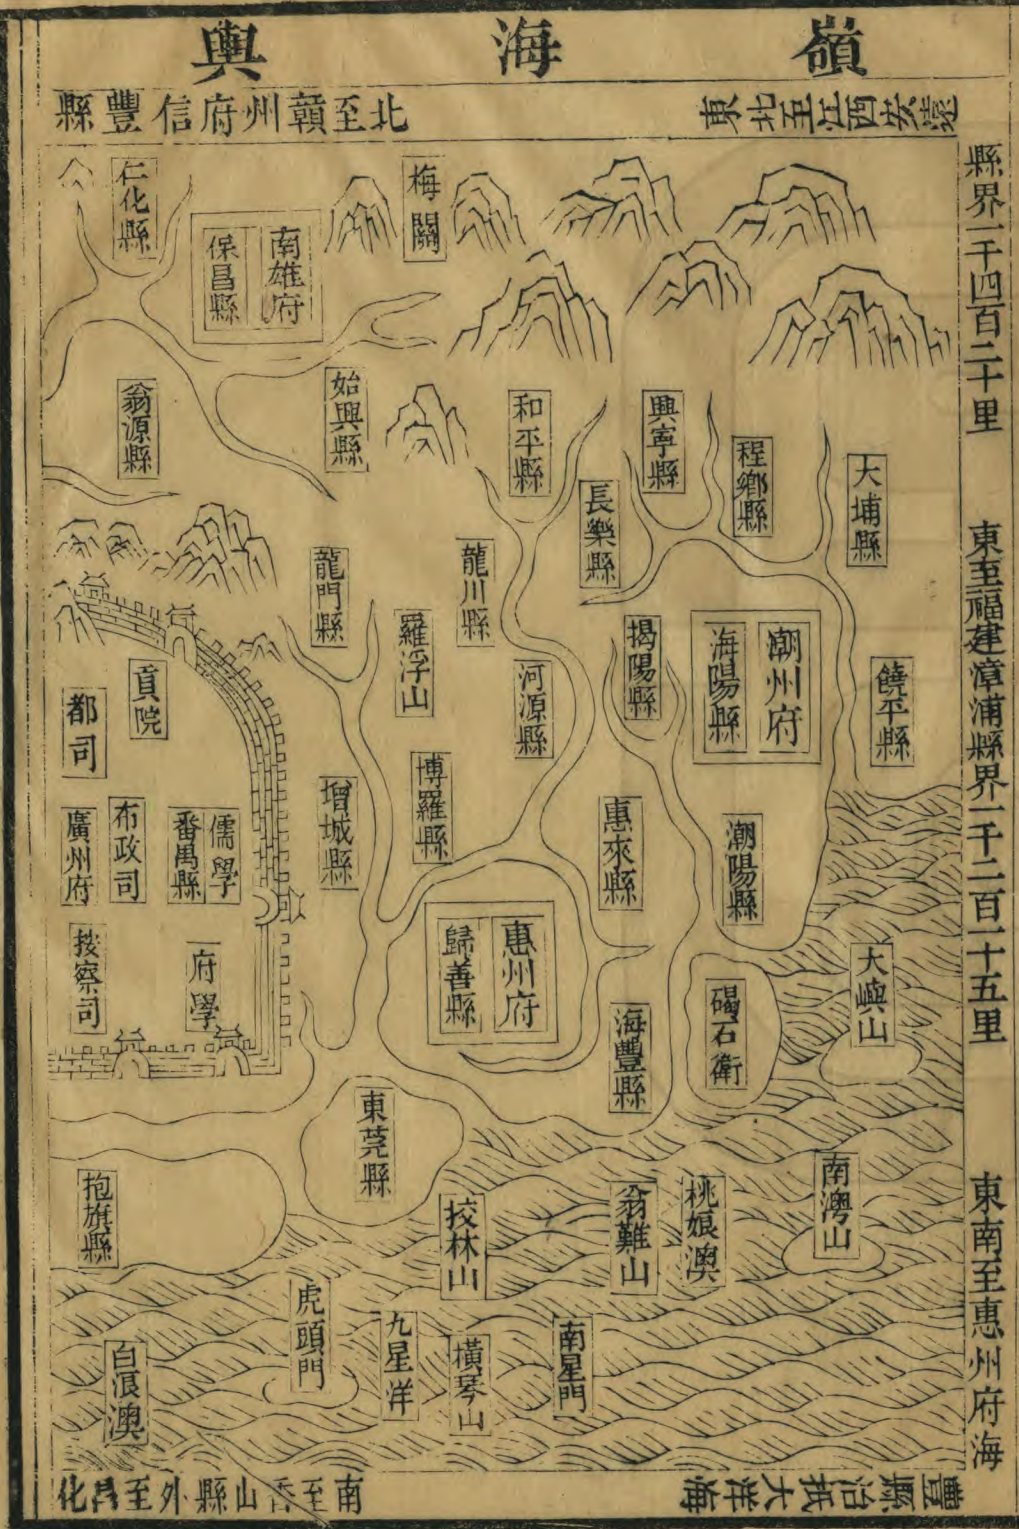 嶺海輿
東北至江西安遠
縣界一千四百二十里
東至福建漳浦縣界一千二百一十五里
東南至惠州府海
豐縣治抵大洋海
北至贛州府信豐縣
南至香山縣外至昌化
仁化縣
南雄府
保昌縣
梅關
翁源縣
始興縣
和平縣
興寧縣
程鄉縣
大埔縣
長樂縣
龍門縣
龍川縣
羅浮山
河源縣
揭陽縣
潮州府
海陽縣
饒平縣
貢院
都司
布政司
廣州府
儒學
番禺縣
增城縣
博羅縣
惠來縣
潮陽縣
按察司
府學
惠州府
歸善縣
海豐縣
碣石衛
大嶼山
東莞縣
抱旗縣
挍林山
翁難山
桃娘澳
南澳山
虎頭門
九星洋
橫琴山
南星門
白浪澳